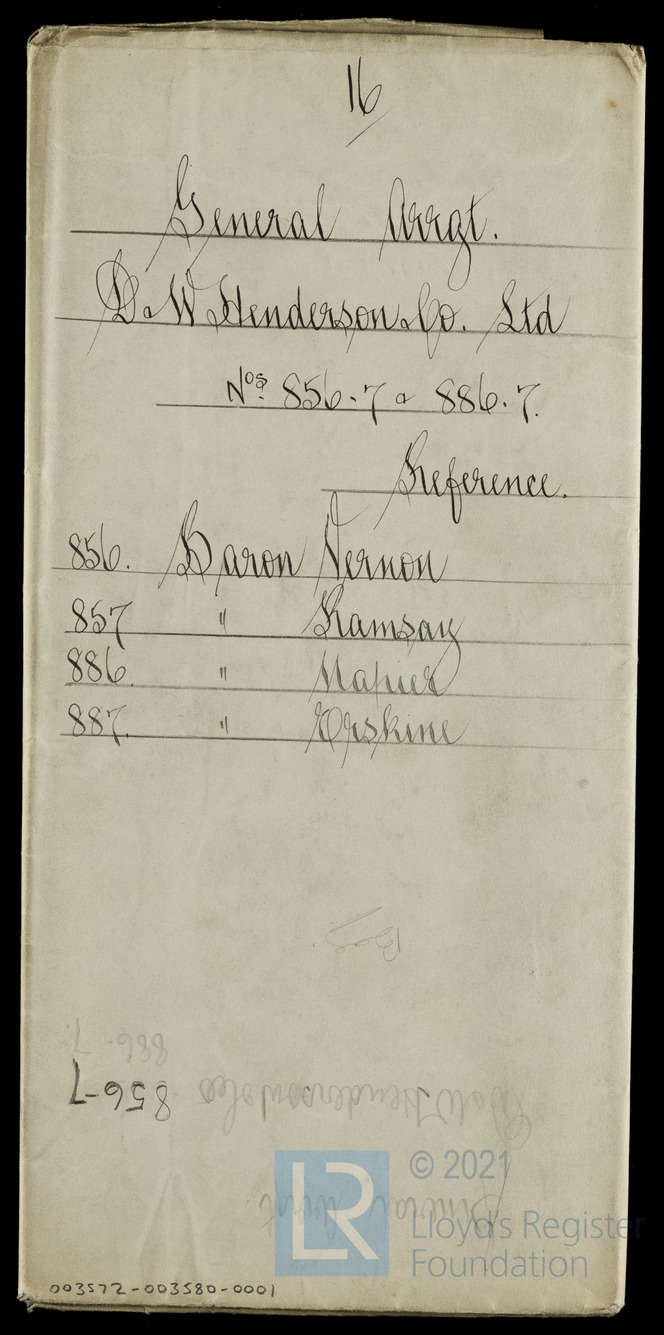 16
General Arrgt.
D. & W. Henderson & Co. Ltd
Nos. 856.7 & 886.7.
Reference.
856. Baron Vernon
857 " Ramsay
886. " Napier
887. " Erskine
886.7.
856-7
D & W Henderson & Co
General Arrgt
© 2021
LR
Lloyd's Register
Foundation
003572-003580-0001